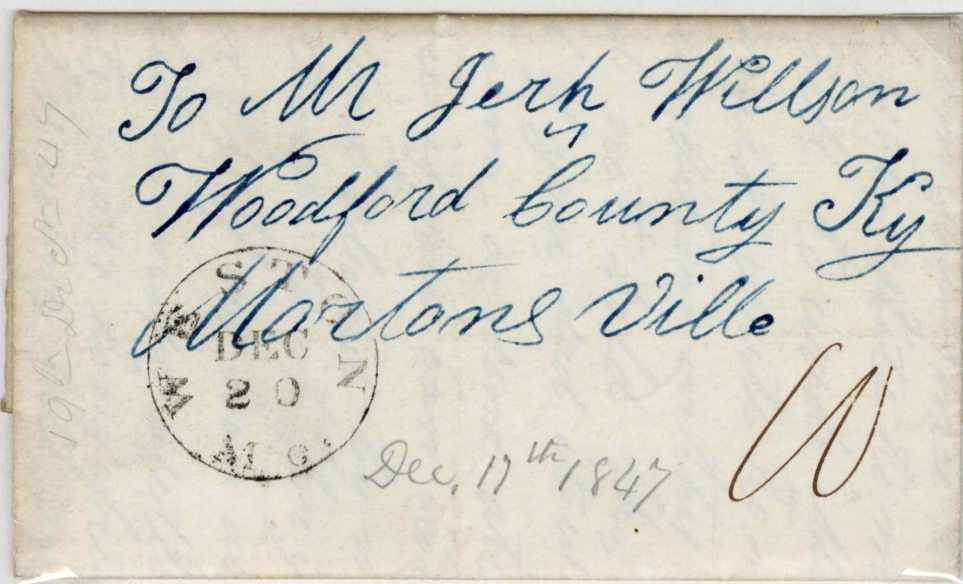 To Mr Jerh Willson
Woodford County Ky
Mortons Ville
WESTON
DEC
20
MO.
10
Dec. 17th 1847
19th Dec 47